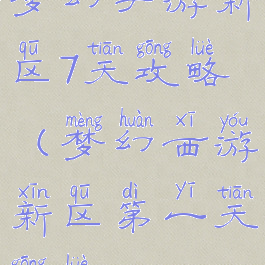 梦幻西游新
qū tiān gōng lüè
区7天攻略
mèng huàn xī yóu
（梦幻西游
xīn qū dì yī tiān
新区第一天
gōng lüè